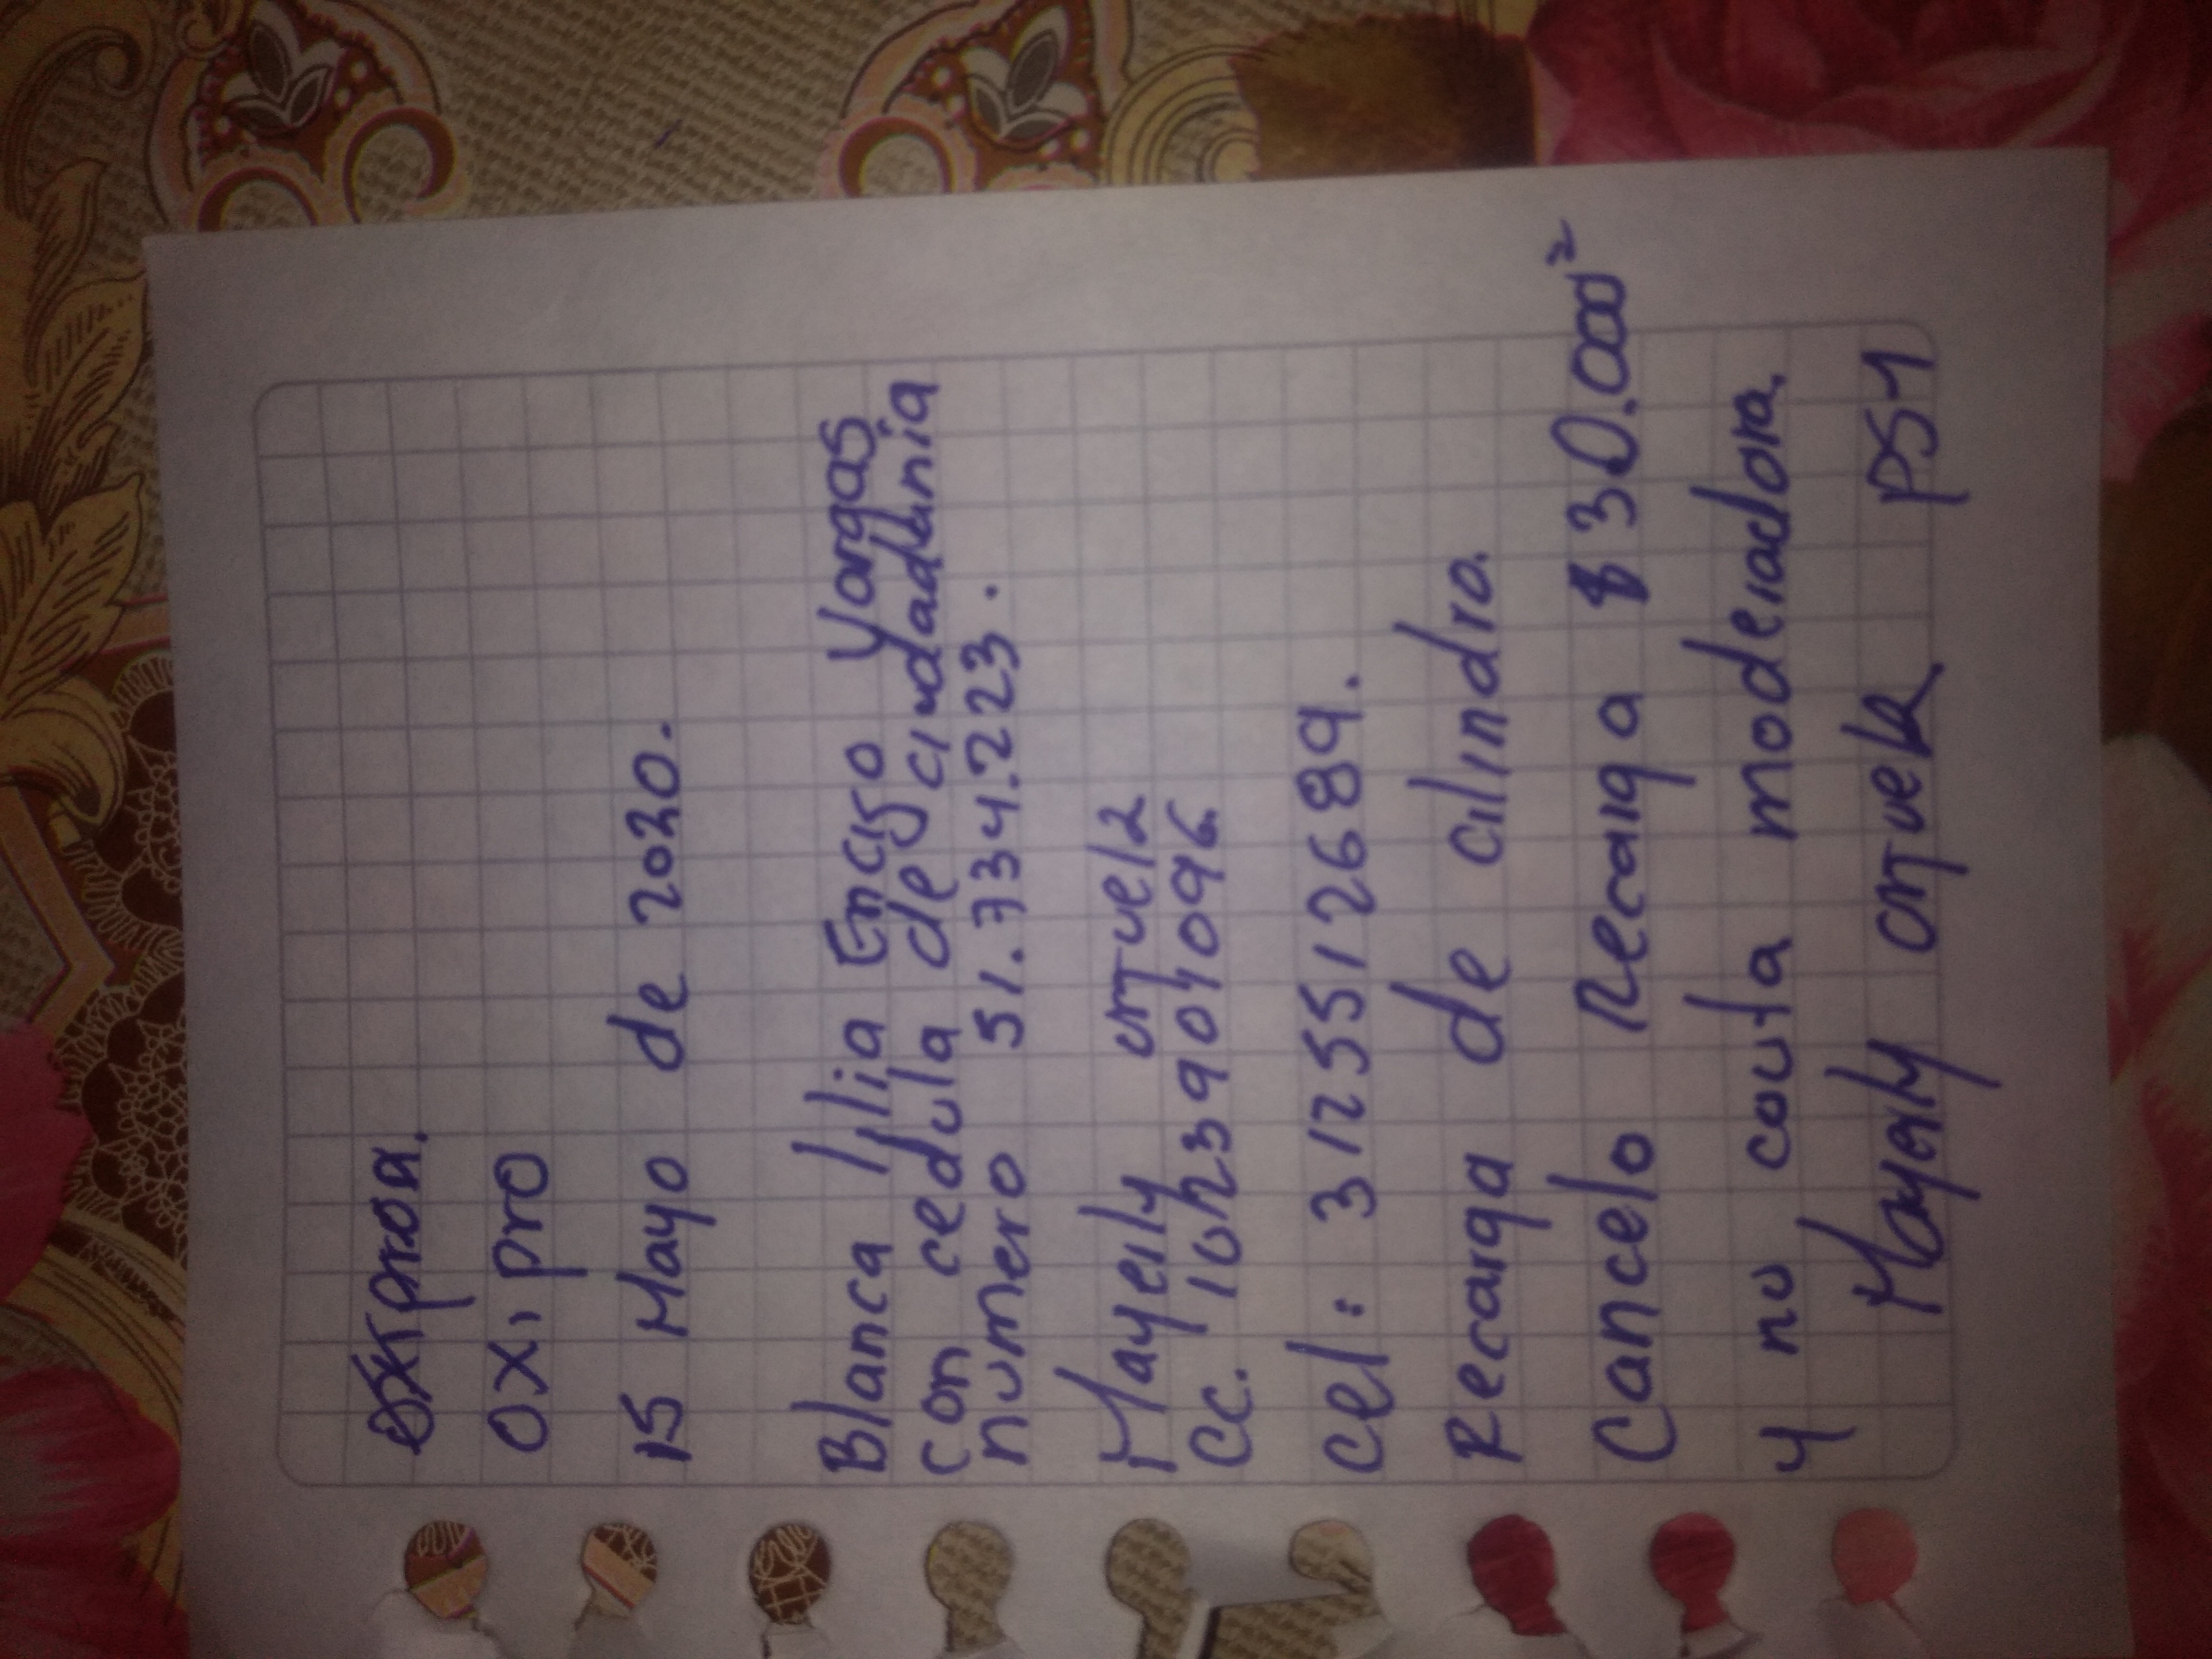 oxi pro
15 Mayo de 2020.
Blanca lilia Enciso Vargas
con cedula de ciudadania
numero 51.734.223.
Mayerly
cc. 1023904096
cel: 3125512689.
Recarga de cilindro.
Cancelo Recarga $30.000
y no couta moderadora.
Mayerly